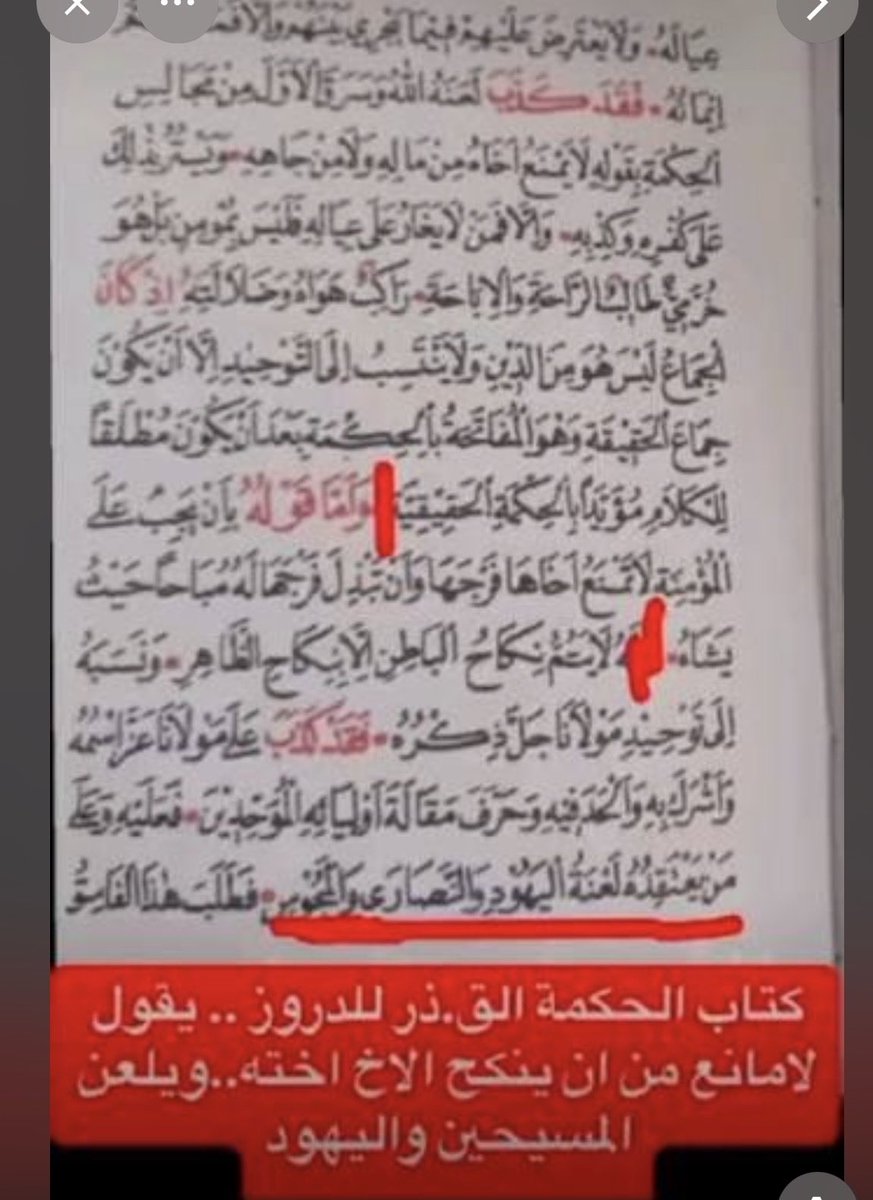 عِيَالَهُ ۰ وَلَا يَعْتَرِضَ عَلَيْهِمْ فِيمَا يَجْرِي بَيْنَهُمْ وَإِلَّا
إِيمَانُهُ ۰ فَقَدْ كَذَبَ لَعَنَهُ اللهُ وَسَرَقَ الْأَوَّلَ مِنْ مَجَالِسِ
الْحِكْمَةِ بِقَوْلِهِ لَا يَمْنَعُ أَخَاهُ مِنْ مَالِهِ وَلَا مِنْ جَاهِهِ ۰ وَيَسْتُرُ بِذَلِكَ
عَلَى كُفْرِهِ وَكَذِبِهِ ۰ وَإِلَّا فَمَنْ لَا يَغَارُ عَلَى عِيَالِهِ فَلَيْسَ بِمُؤْمِنٍ بَلْ هُوَ
خُرَّمِيٌّ طَالِبُ الرَّاحَةِ وَالْإِبَاحَةِ ۰ رَاكِبٌ هَوَاهُ وَضَلَالَتِهِ إِذْ كَانَ
الْجِمَاعُ لَيْسَ هُوَ مِنَ الدِّينِ وَلَا يَنْتَسِبُ إِلَى التَّوْحِيدِ إِلَّا أَنْ يَكُونَ
جِمَاعَ الْحَقِيقَةِ وَهُوَ الْمُفَاتَحَةُ بِالْحِكْمَةِ بَعْدَ أَنْ يَكُونَ مُطْلَقًا
لِلْكَلَامِ مُؤَيَّدًا بِالْحِكْمَةِ الْحَقِيقِيَّةِ وَأَمَّا قَوْلُهُ بِأَنْ يَجِبُ عَلَى
الْمُؤْمِنَةِ لَا تَمْنَعُ أَخَاهَا فَرْجَهَا وَأَنْ تَبْذِلَ فَرْجَهَا لَهُ مُبَاحًا حَيْثُ
يَشَاءُ ۰ لَا يَتُمُّ نِكَاحُ الْبَاطِنِ إِلَّا بِنِكَاحِ الظَّاهِرِ ۰ وَنَسَبَهُ
إِلَى تَوْحِيدِ مَوْلَانَا جَلَّ ذِكْرُهُ ۰ فَقَدْ كَذَبَ عَلَى مَوْلَانَا عَزَّ اسْمُهُ
وَأَشْرَكَ بِهِ وَأَلْحَدَ فِيهِ وَحَرَّفَ مَقَالَةَ أَوْلِيَائِهِ الْمُوَحِّدِينَ ۰ فَعَلَيْهِ وَعَلَى
مَنْ يَعْتَقِدُهُ لَعْنَةُ الْيَهُودِ وَالنَّصَارَى وَالْمَجُوسِ ۰ فَطَلَبَ هَذَا الْفَاسِقُ
كتاب الحكمة الق.ذر للدروز .. يقول
لامانع من ان ينكح الاخ اخته..ويلعن
المسيحين واليهود